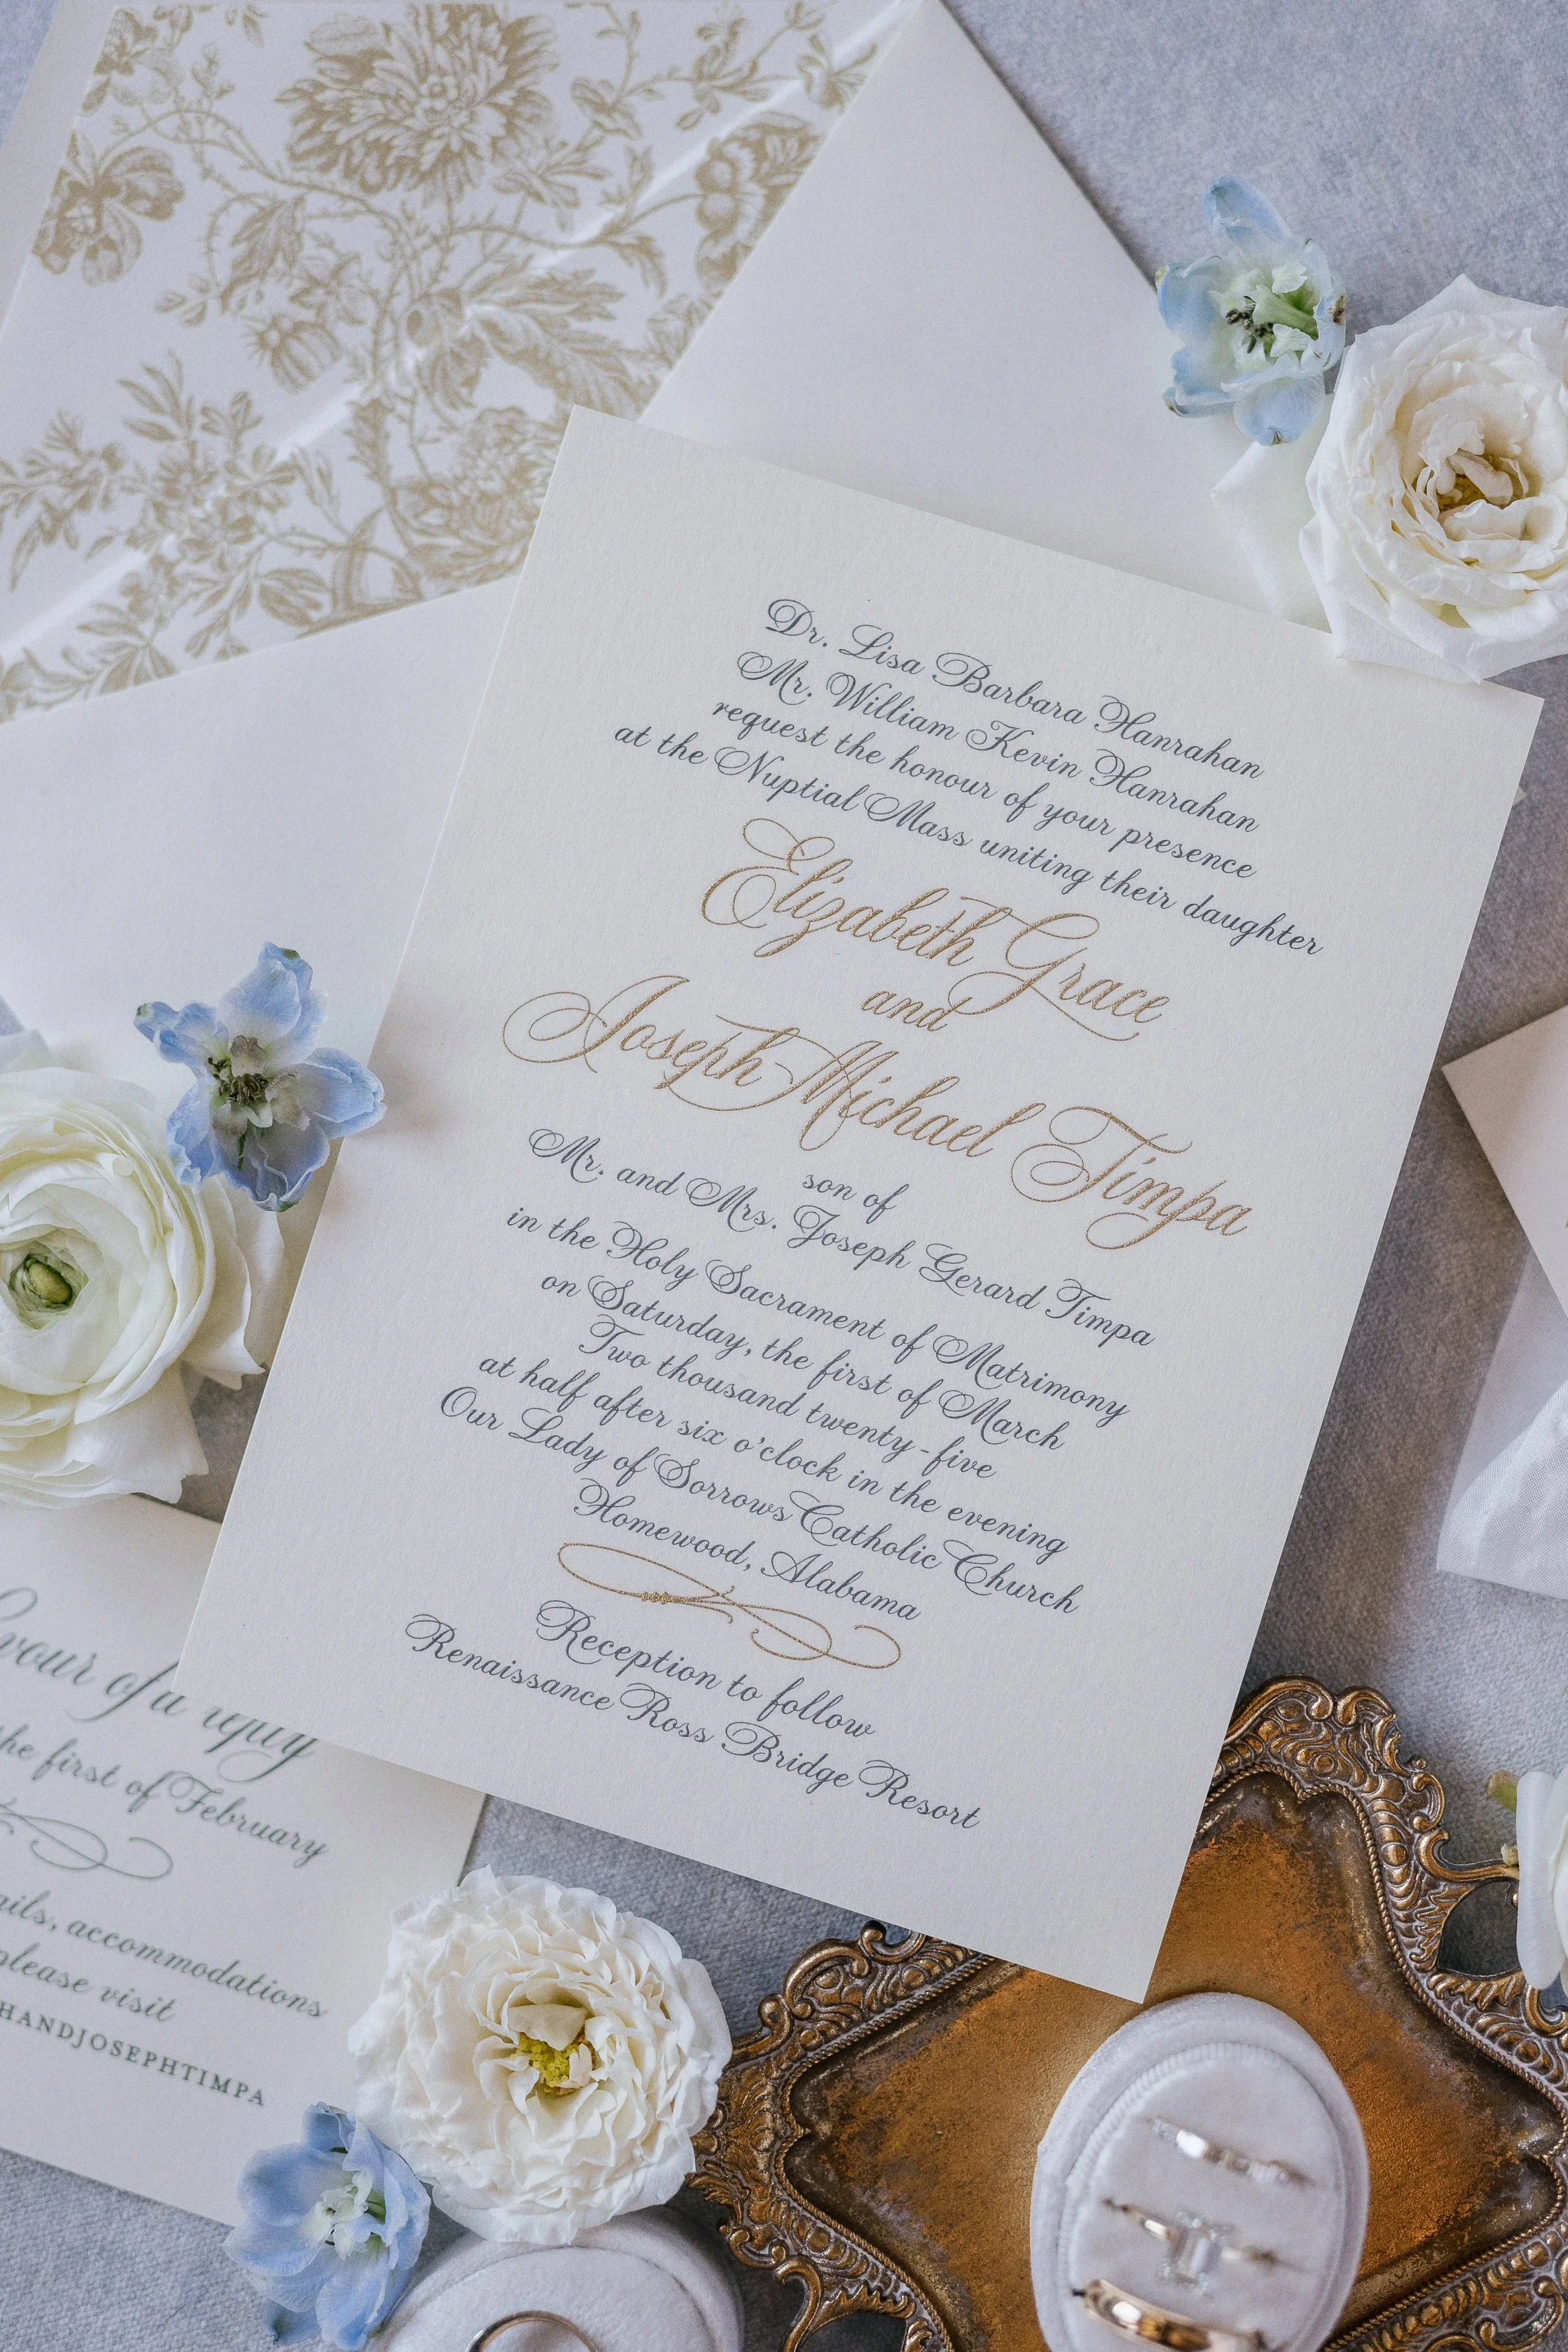 Dr. Lisa Barbara Hanrahan
Mr. William Kevin Hanrahan
request the honour of your presence
at the Nuptial Mass uniting their daughter
Elizabeth Grace
and
Joseph Michael Timpa
son of
Mr. and Mrs. Joseph Gerard Timpa
in the Holy Sacrament of Matrimony
on Saturday, the first of March
Two thousand twenty-five
at half after six o'clock in the evening
Our Lady of Sorrows Catholic Church
Homewood, Alabama
Reception to follow
Renaissance Ross Bridge Resort
of a
first of February
accommodations
please visit
HANDJOSEPHTIMPA